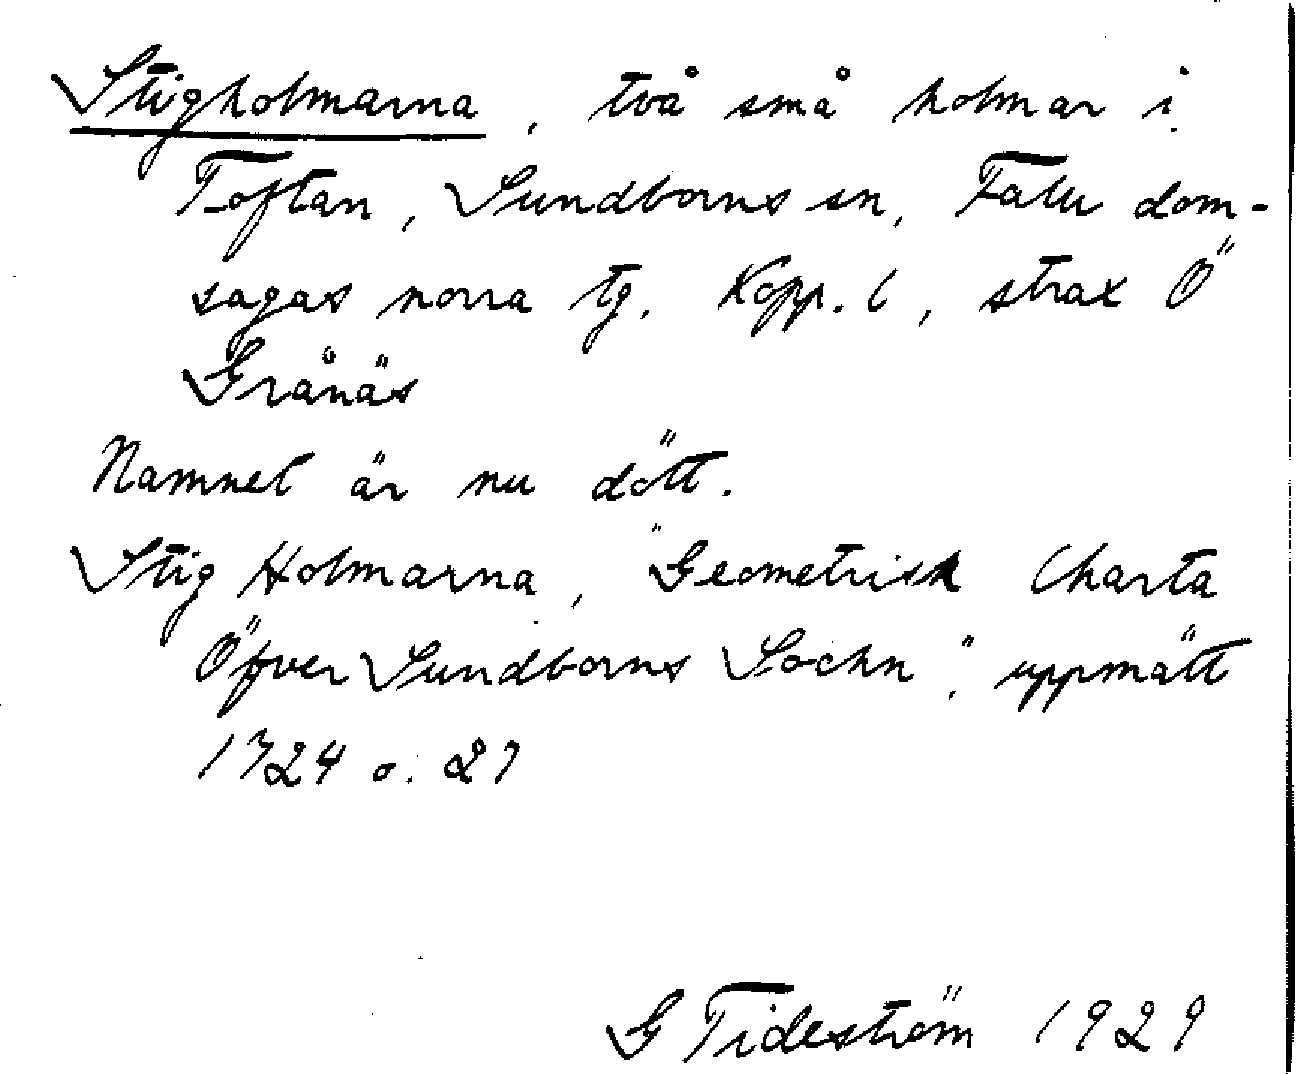 Stigholmarna, två små holmar i
Toftan, Sundborns sn, Falu dom-
sagas norra tg. Kopp. l, strax Ö
Gränäs
Namnet är nu dött.
Stig Holmarna, "Geometrisk Charta
Öfver Sundborns Sochn", uppmätt
1724 o. 27
G Tideström 1929